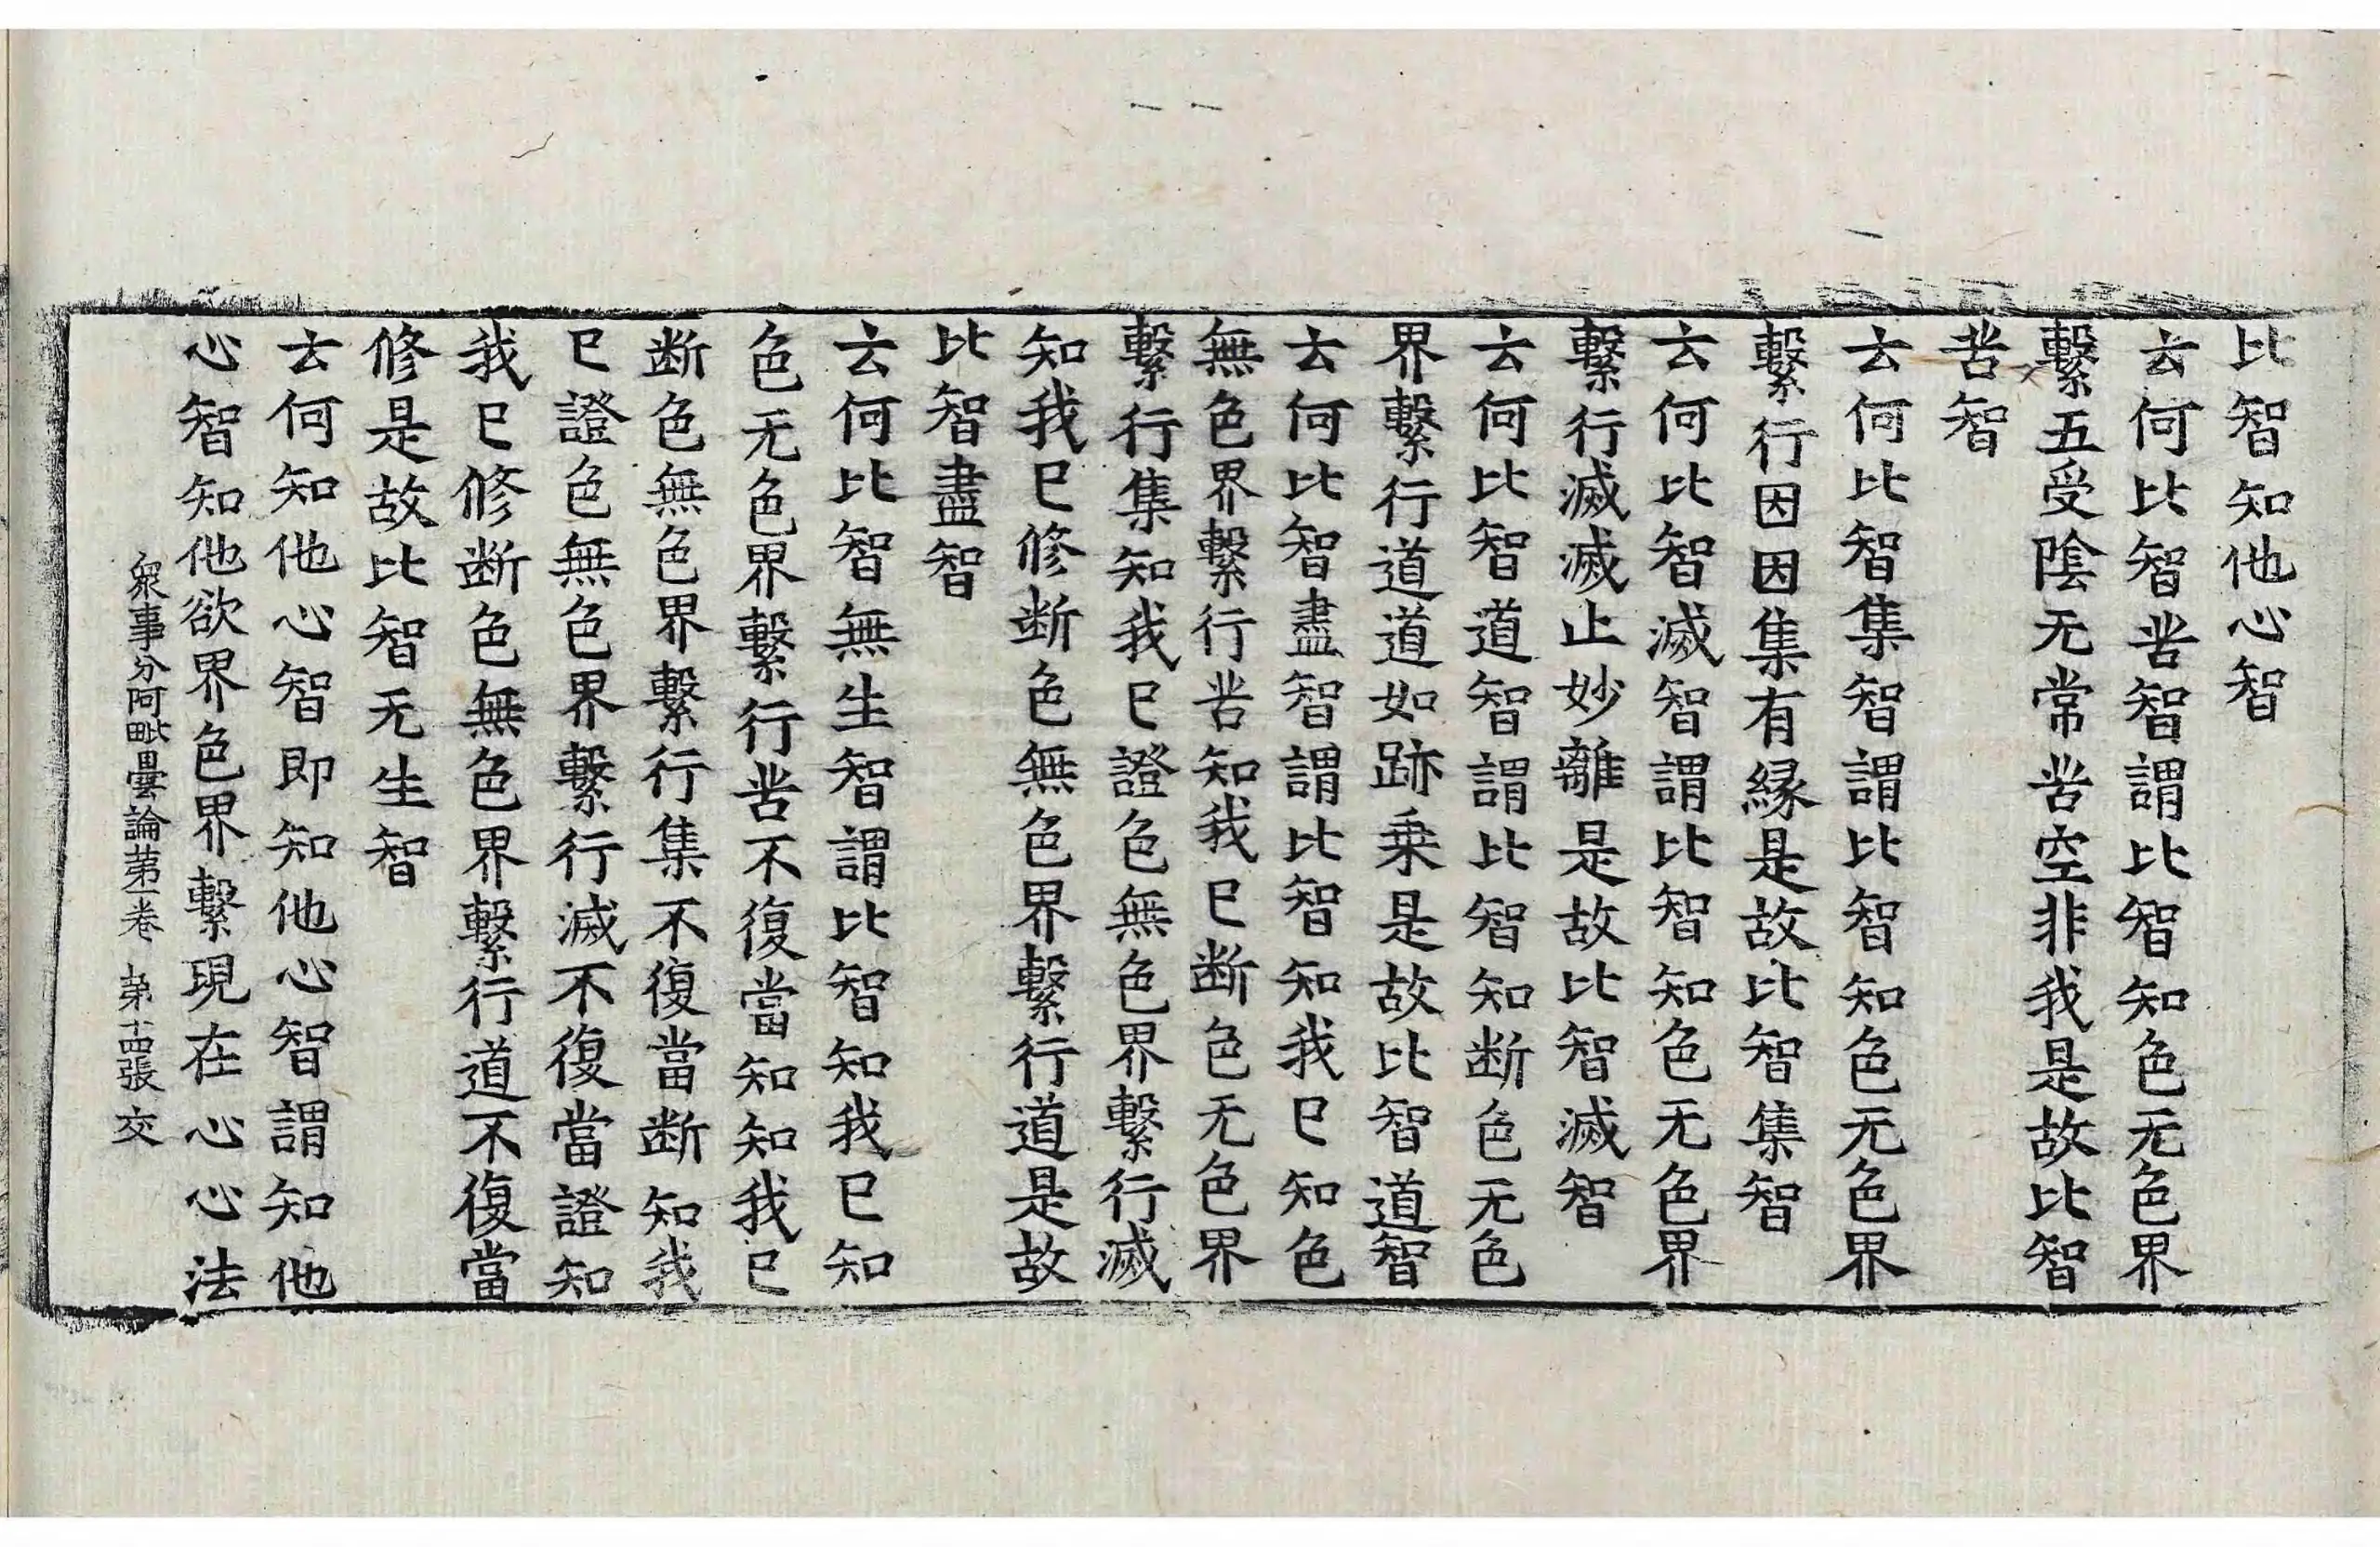 比智知他心智
云何比智苦智謂比智知色无色界
繫五受陰无常苦空非我是故比智
苦智
云何比智集智謂比智知色无色界
繫行因因集有緣是故比智集智
云何比智滅智謂比智知色无色界
繫行滅滅止妙離是故比智滅智
云何比智道智謂比智知断色无色
界繫行道道如跡乗是故比智道智
云何比智盡智謂比智知我已知色
無色界繫行苦知我已断色无色界
繫行集知我已證色無色界繫行滅
知我已修断色無色界繫行道是故
比智盡智
云何比智無生智謂比智知我已知
色无色界繫行苦不復當知知我已
断色無色界繫行集不復當断知我
已證色無色界繫行滅不復當證知
我已修断色無色界繫行道不復當
修是故比智无生智
云何知他心智即知他心智謂知他
心智知他欲界色界繫現在心心法
衆事分阿毗曇論第一卷 第十四張 交